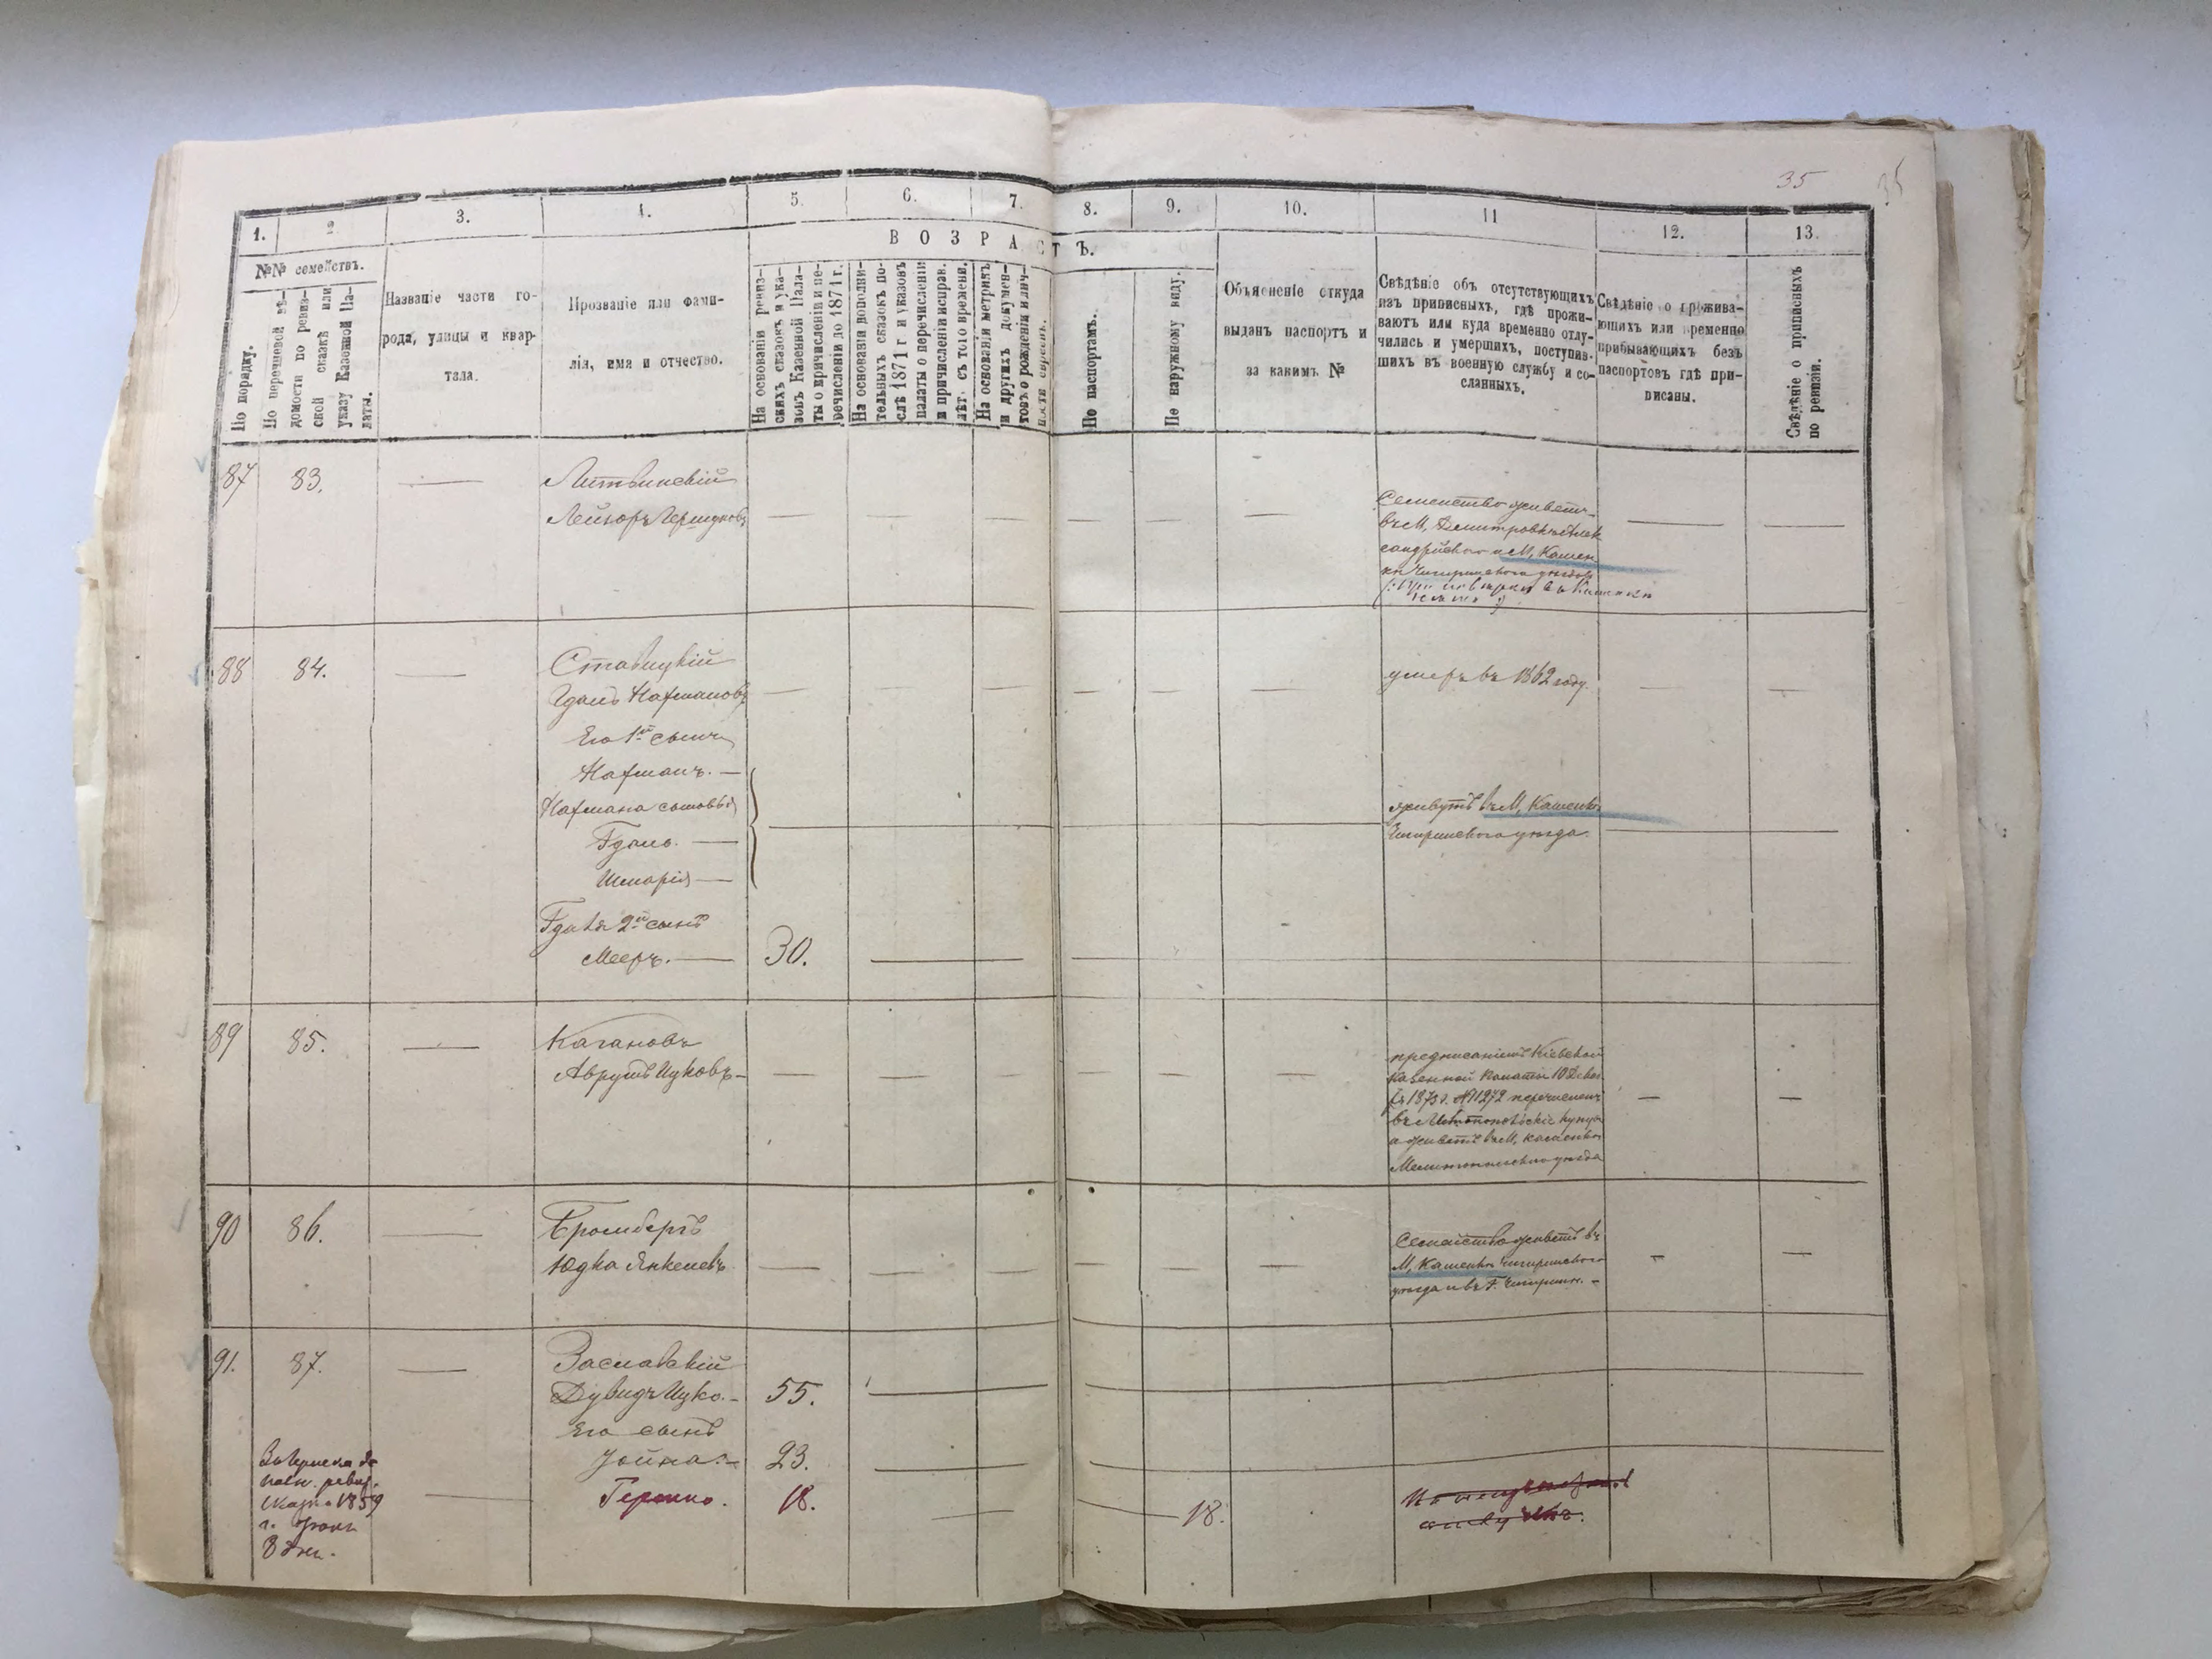 35
35
1. 2. 3. 4. 5. 6. 7. 8. 9. 10. 11 12. 13.
ВОЗРАСТЪ.
№№ семействъ.
По порядку.
По перечневой вѣ-
домости по ревиз-
ской сказкѣ или
указу Казенной Па-
латы.
Названіе части го-
рода, улицы и квар-
тала.
Прозваніе или фами-
лія, имя и отчество.
На основаніи ревиз-
скихъ сказокъ и ука-
зовъ Казенной Пала-
ты о причисленіи и пе-
речисленіи до 1871 г.
На основаніи дополни-
тельныхъ сказокъ по-
слѣ 1871 г и указовъ
палаты о перечисленіи
и причисленіи исправ.
лѣт. съ того времени.
На основаніи метрикъ
и другихъ докумен-
товъ о рожденіи и лич-
ности евреевъ.
По паспортамъ.
По наружному виду.
Объясненіе откуда
выданъ паспортъ и
за какимъ №
Свѣдѣніе объ отсутствующихъ
изъ приписныхъ, гдѣ прожи-
ваютъ или куда временно отлу-
чились и умершихъ, поступив-
шихъ въ военную службу и со-
сланныхъ.
Свѣдѣніе о прожива-
ющихъ или временно
прибывающихъ безъ
паспортовъ гдѣ при-
писаны.
Свѣдѣніе о приписныхъ
по ревизіи.
87 83. — Литвинскій
Лейзоръ Гершковъ
Семейство живетъ
въ М, Дмитровкѣ Алек
сандрійскаго и М, Камен
кѣ Чигиринскаго уѣздов
88 84. — Ставицкій
Гдаль Нахмановъ
умеръ въ 1862 году.
Его 1й сынъ
Нахманъ. —
Нахмана сыновья
Гдаль. —
Шмарія —
живутъ въ М, Каменкѣ
Чигиринскаго уѣзда.
Гдаля 2й сынъ
Мееръ. — 30.
89 85. — Кагановъ
Аврумъ Ицковъ —
предписаніемъ Кіевской
Казенной Палаты 10 Декаб
ря 1873 г. № 11272 перечисленъ
въ Мелитопольскіе купцы
а живетъ въ М, Каменкѣ
Мелитопольскаго уѣзда
90 86. — Бромбергъ
Юдка Янкелевъ
Семейство живетъ въ
М, Каменкѣ Чигиринскаго
уѣзда и въ Г. Чигиринѣ. —
91. 87. — Заславскій
Дувидъ Ицко. — 55.
Его сынъ
Іойна. — 23.
Гершко. 18. 18.
ревиз.
сказка 1859